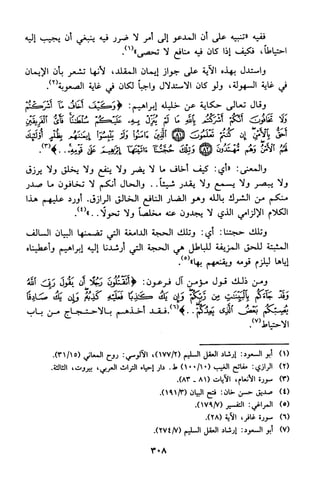 ففيه «تنبيه على أن المدعو إلى أمر لا ضرر فيه ينبغي أن يجيب إليه
احتياطاً، فكيف إذا كان فيه منافع لا تحصى»(١).
واستدل بهذه الآية على جواز إيمان المقلد، لأنها تشعر بأن الإيمان
في غاية السهولة، ولو كان الاستدلال واجباً لكان في غاية الصعوبة(٢).
وقال تعالى حكاية عن خليله إبراهيم: ﴿وَكَيْفَ أَخَافُ مَا أَشْرَكْتُمْ
وَلَا تَخَافُونَ أَنَّكُمْ أَشْرَكْتُم بِاللَّهِ مَا لَمْ يُنَزِّلْ بِهِ عَلَيْكُمْ سُلْطَانًا فَأَيُّ الْفَرِيقَيْنِ
أَحَقُّ بِالْأَمْنِ إِن كُنتُمْ تَعْلَمُونَ ٨١ الَّذِينَ آمَنُوا وَلَمْ يَلْبِسُوا إِيمَانَهُم بِظُلْمٍ أُولَٰئِكَ
لَهُمُ الْأَمْنُ وَهُم مُّهْتَدُونَ ٨٢ وَتِلْكَ حُجَّتُنَا آتَيْنَاهَا إِبْرَاهِيمَ عَلَىٰ قَوْمِهِ..﴾(٣).
والمعنى: «أي: كيف أخاف ما لا يضر ولا ينفع ولا يخلق ولا يرزق
ولا يبصر ولا يسمع ولا يقدر شيئاً.. والحال أنكم لا تخافون ما صدر
منكم من الشرك بالله وهو الضار النافع الخالق الرازق. أورد عليهم هذا
الكلام الإلزامي الذي لا يجدون عنه مخلصاً ولا تحولاً..»(٤).
وتلك حجتنا: أي: وتلك الحجة الدامغة التي تضمنها البيان السالف
المثبتة للحق المزيفة للباطل هي الحجة التي أرشدنا إليه إبراهيم وأعطيناه
إياها ليلزم قومه ويقنعهم بها(٥).
ومن ذلك قول مؤمن آل فرعون: ﴿أَتَقْتُلُونَ رَجُلًا أَن يَقُولَ رَبِّيَ اللَّهُ
وَقَدْ جَاءَكُم بِالْبَيِّنَاتِ مِن رَّبِّكُمْ وَإِن يَكُ كَاذِبًا فَعَلَيْهِ كَذِبُهُ وَإِن يَكُ صَادِقًا
يُصِبْكُم بَعْضُ الَّذِي يَعِدُكُمْ..﴾(٦). فقد أخذهم بالاحتجاج من باب
الاحتياط(٧).
(١) أبو السعود: إرشاد العقل السليم (١٧٧/٢)، الآلوسي: روح المعاني (٣١/١٥).
(٢) الرازي: مفاتح الغيب (١٠٠/١٠) ط. دار إحياء التراث العربي، بيروت، الثالثة.
(٣) سورة الأنعام، الآيات (٨١ - ٨٣).
(٤) صديق حسن خان: فتح البيان (١٩١/٣).
(٥) المراغي: التفسير (١٧٩/٧).
(٦) سورة غافر، الآية (٢٨).
(٧) أبو السعود: إرشاد العقل السليم (٢٧٤/٧).
٣٠٨